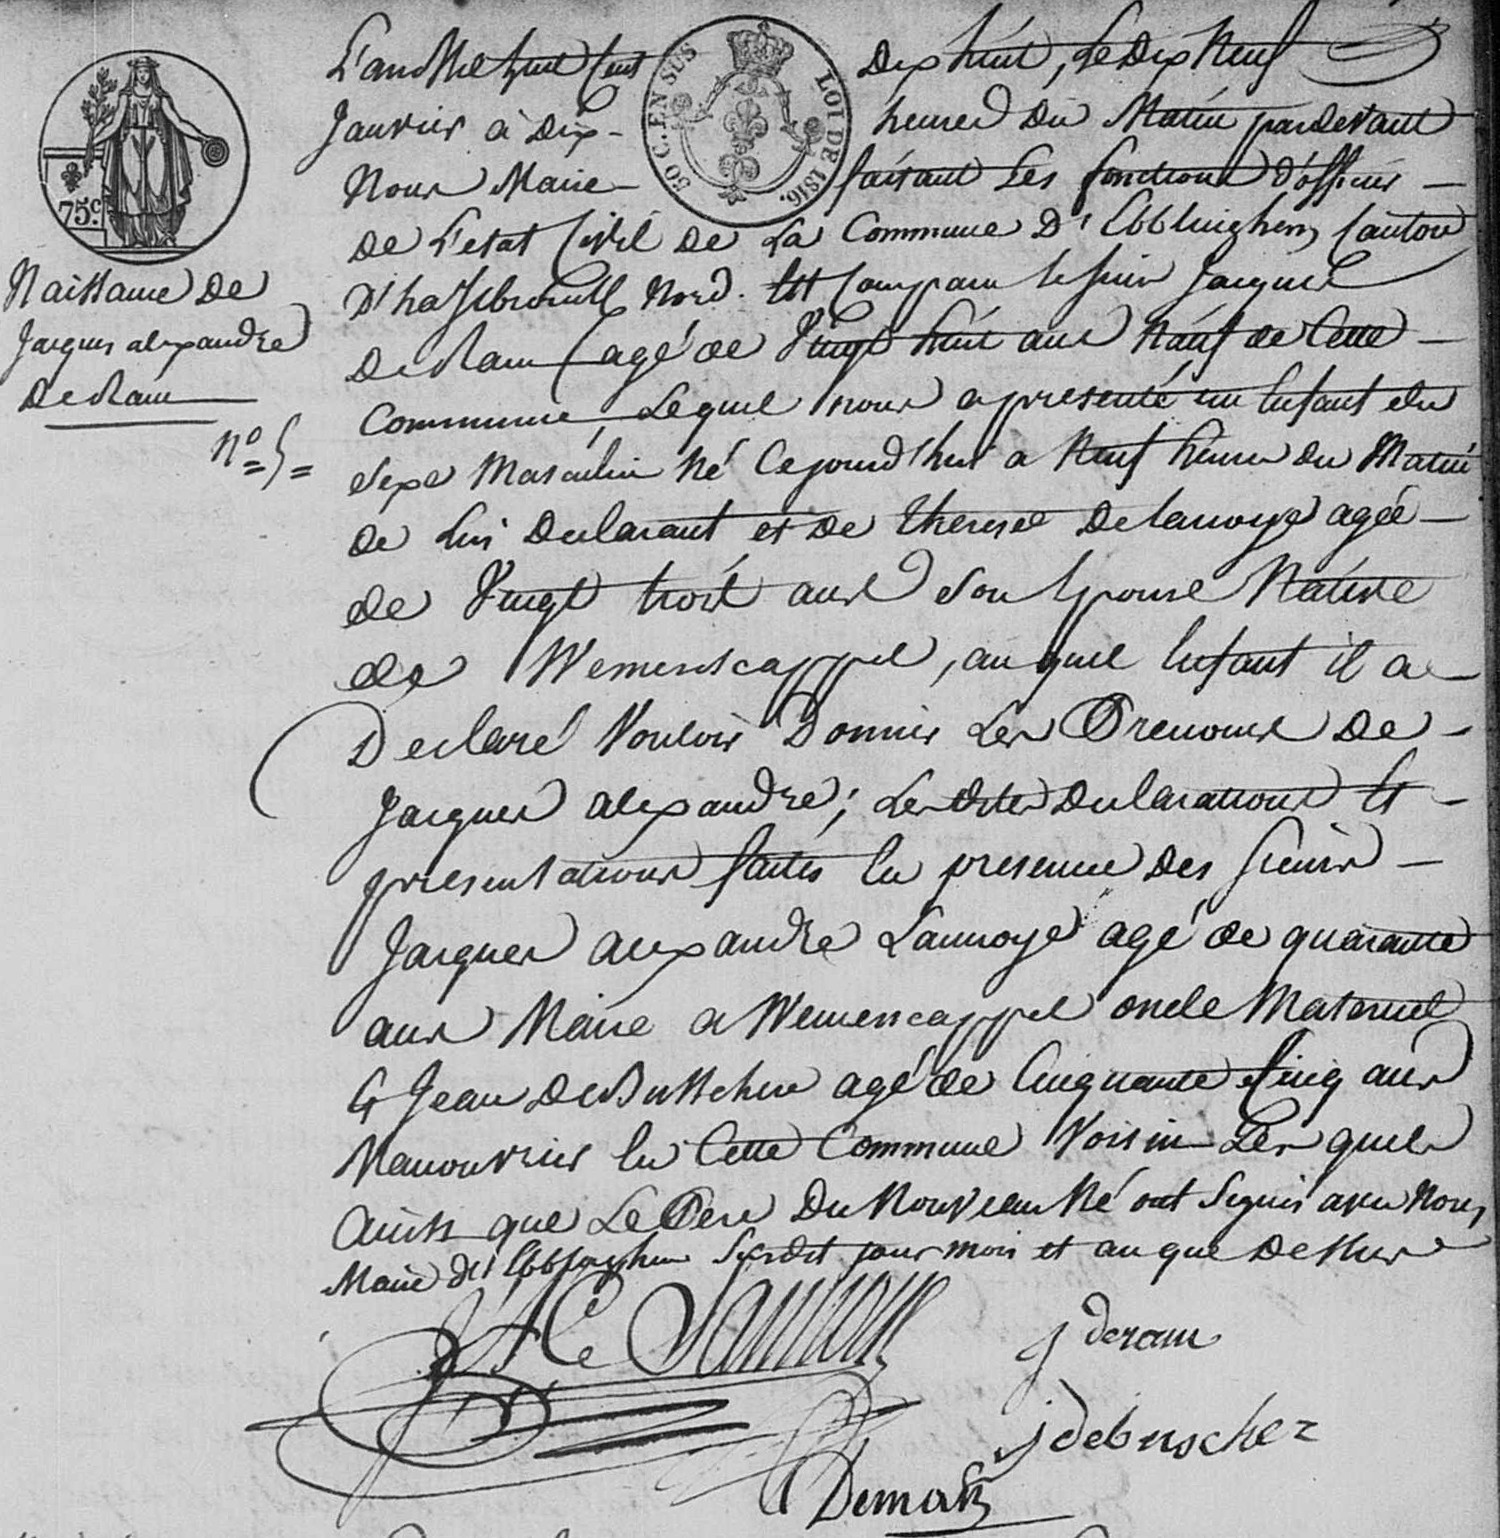 75c.
50 C. EN SUS
LOI DE 1816.
Naissance de
Jacques alexandre
Deram
No 5
L'an Mil huit Cent Dix huit, Le Dix Neuf
Janvier à Dix heures du Matin pardevant
Nous Maire faisant Les fonctions d'officier
de L'etat Civil de La Commune D'Ebblinghem Canton
D'hazebrouck Nord. Est Comparu le sieur Jacques
Deram agé de Vingt huit ans Natif de Cette
Commune, Lequel nous a presenté un Enfant du
Sexe Masculin Né Cejourd'hui a Neuf heures du Matin
de Lui Declarant et de therese Delannoye agée
de Vingt trois ans son Epouse Native
de Wemerscappel, au quel Enfant il a
Declaré Vouloir Donner Les Prenoms de
Jacques alexandre; Les dites Declarations Et
presentations faites En presence des Sieurs
Jacques alexandre Lannoye agé de quarante
ans Maire a Wemerscappel oncle Maternel
Et Jean DeBusscher agé de Cinquante Cinq ans
Manouvrier En Cette Commune Voisin Les quels
Ainsi que Le Pere Du Nouveau Né ont Signés avec Nous
Maire d'Ebblinghem Susdit jour mois et an que Dessus
Lannoye
j deram
j debuscher
Demar